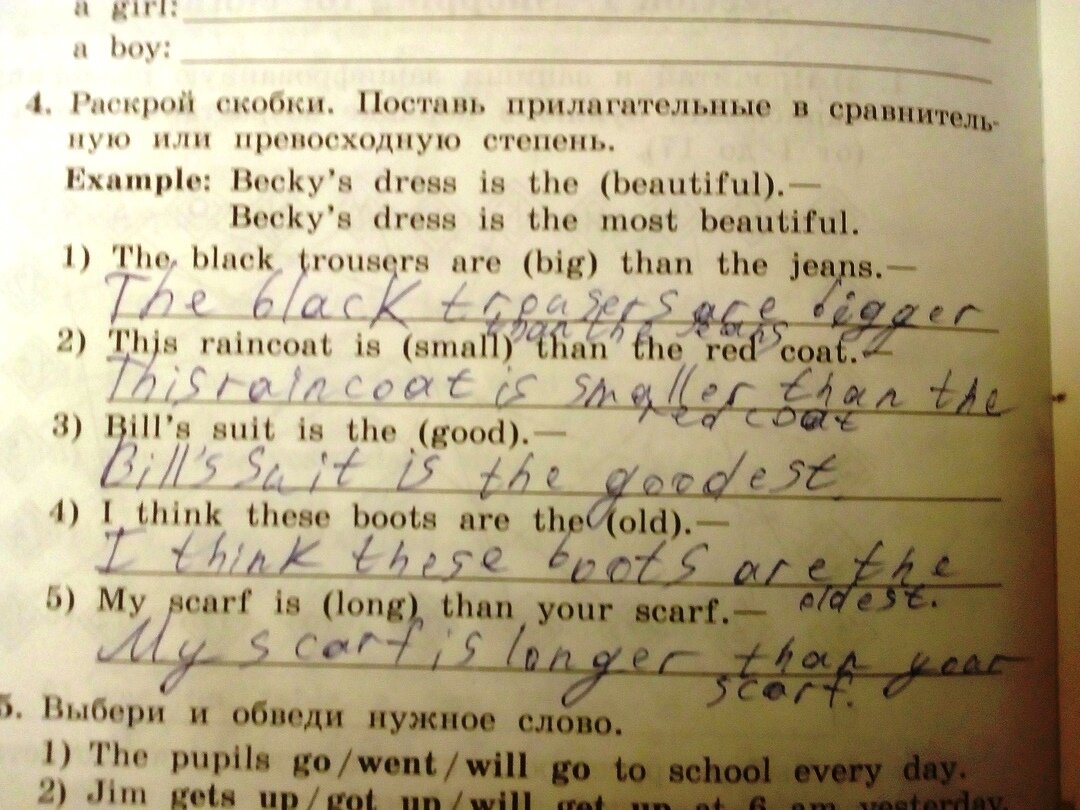 a girl:
a boy:
4. Раскрой скобки. Поставь прилагательные в сравнитель-
ную или превосходную степень.
Example: Becky's dress is the (beautiful).—
Becky's dress is the most beautiful.
1) The black trousers are (big) than the jeans.—
The black trousers are bigger
than the jeans
2) This raincoat is (small) than the red coat.—
This raincoat is smaller than the
red coat
3) Bill's suit is the (good).—
Bill's suit is the goodest
4) I think these boots are the (old).—
I think these boots are the
oldest.
5) My scarf is (long) than your scarf.—
My scarf is longer than your
scarf.
5. Выбери и обведи нужное слово.
1) The pupils go/went/will go to school every day.
2) Jim gets up/got up/will get up at 6 am yesterday.